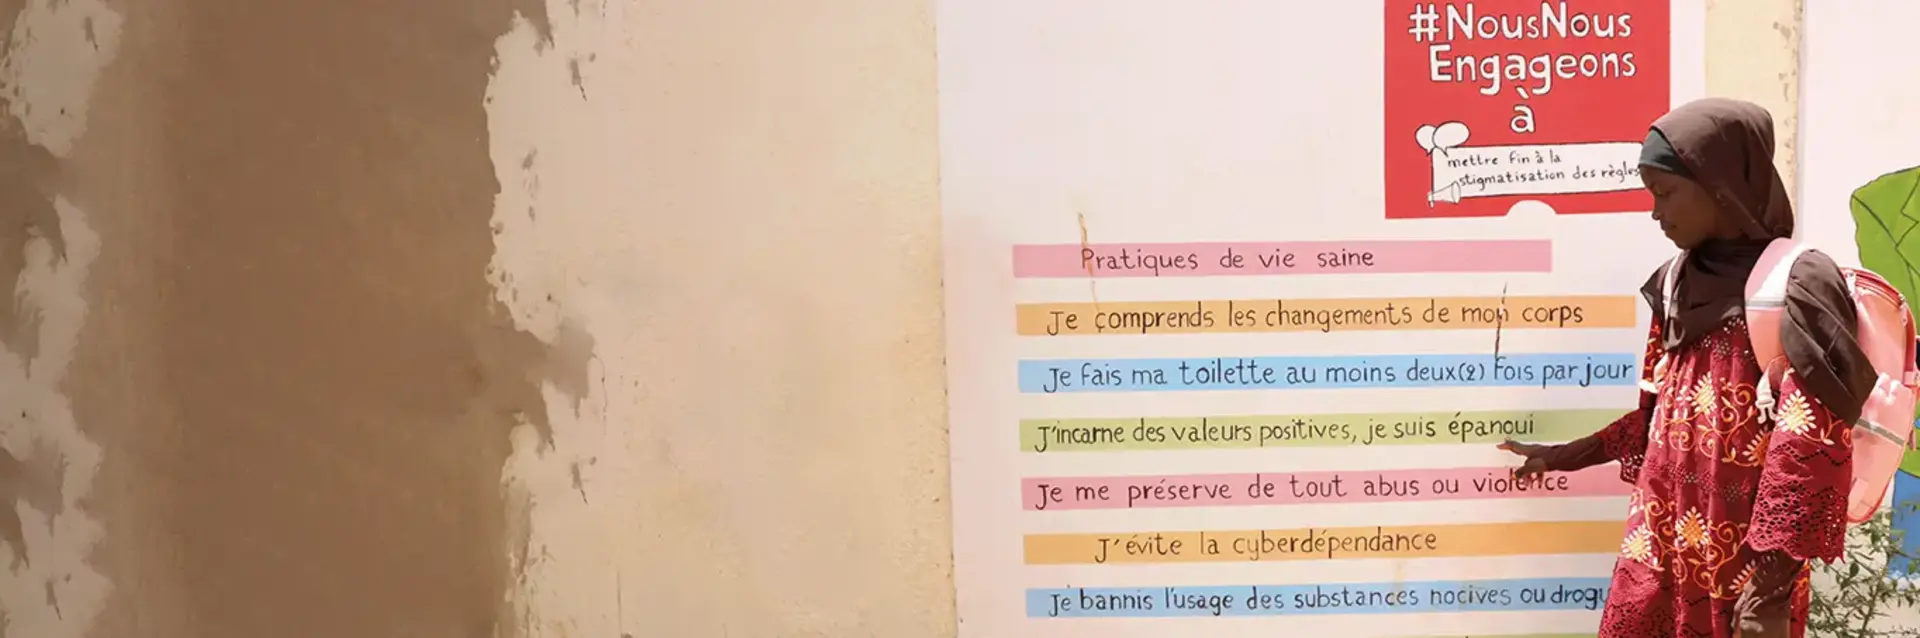 #NousNous
Engageons
à
mettre fin à la
stigmatisation des règles
Pratiques de vie saine
Je comprends les changements de mon corps
Je fais ma toilette au moins deux(2) fois par jour
J'incarne des valeurs positives, je suis épanoui
Je me préserve de tout abus ou violence
J'évite la cyberdépendance
Je bannis l'usage des substances nocives ou